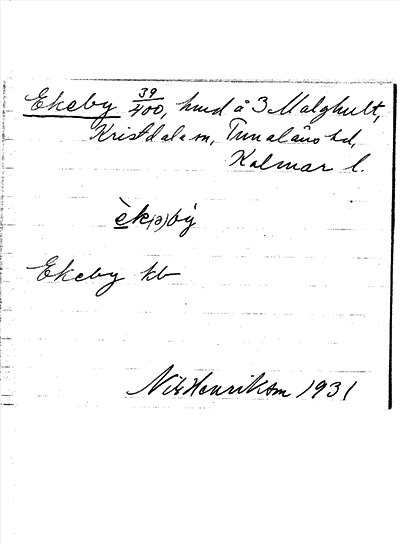 Ekeby 39/400, hmd å 3 Malghult,
Kristdala sn, Tunaläns hd,
Kalmar l.
èk(ə)bỳ
Ekeby kb
Nils Henrikson 1931